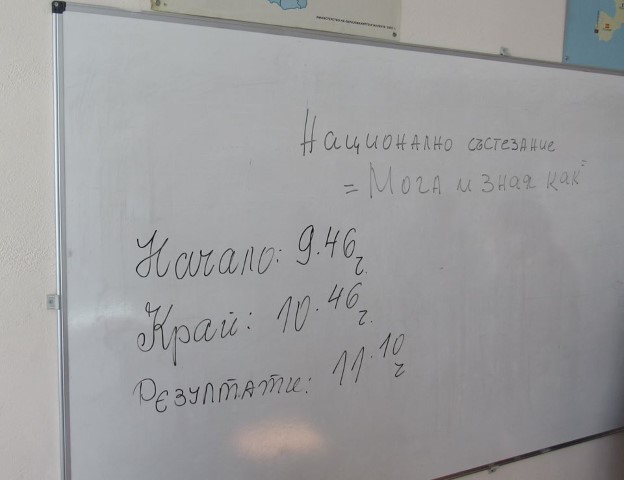 Национално състезание
= Мога и зная как"
Начало: 9.46 ч.
Край: 10.46 ч.
Резултати: 11.10 ч